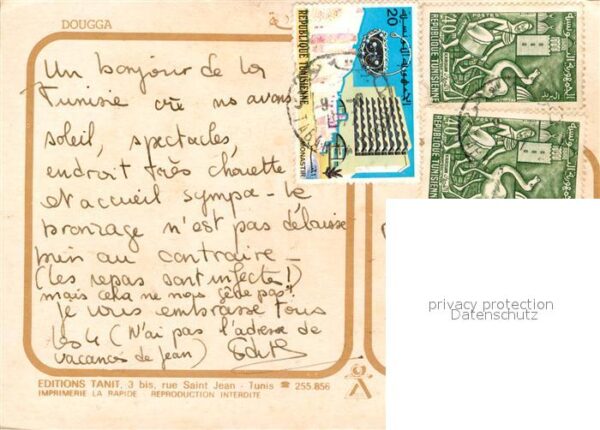 DOUGGA
Un bonjour de la
Tunisie où nous avons
soleil, spectacles,
endroit très chouette
et accueil sympa - le
bronzage n'est pas délaissé
bien au contraire -
(les repas sont infects!)
mais cela ne nous gêne pas!
Je vous embrasse tous
les 4 (N'ai pas l'adresse de
vacances de Jean) Edith
20
REPUBLIQUE TUNISIENNE
MONASTIR
40
REPUBLIQUE TUNISIENNE
40
REPUBLIQUE TUNISIENNE
privacy protection
Datenschutz
EDITIONS TANIT, 3 bis, rue Saint Jean - Tunis ☎ 255.856
IMPRIMERIE LA RAPIDE REPRODUCTION INTERDITE